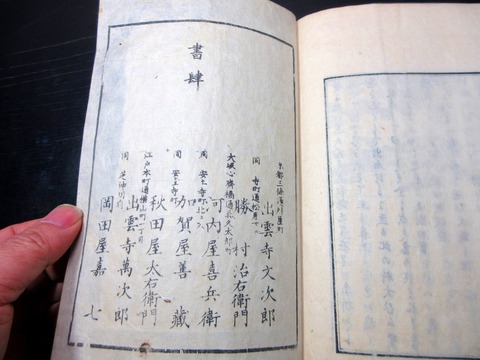 書肆
京都三條通升屋町
出雲寺文次郎
同 寺町通松原下ル
勝村治右衛門
大坂心齋橋通北久太郎町
河内屋喜兵衛
同
加賀屋善藏
同 安堂寺町
秋田屋太右衛門
江戸本町通横山町
出雲寺萬次郎
同 芝神明前
岡田屋嘉七